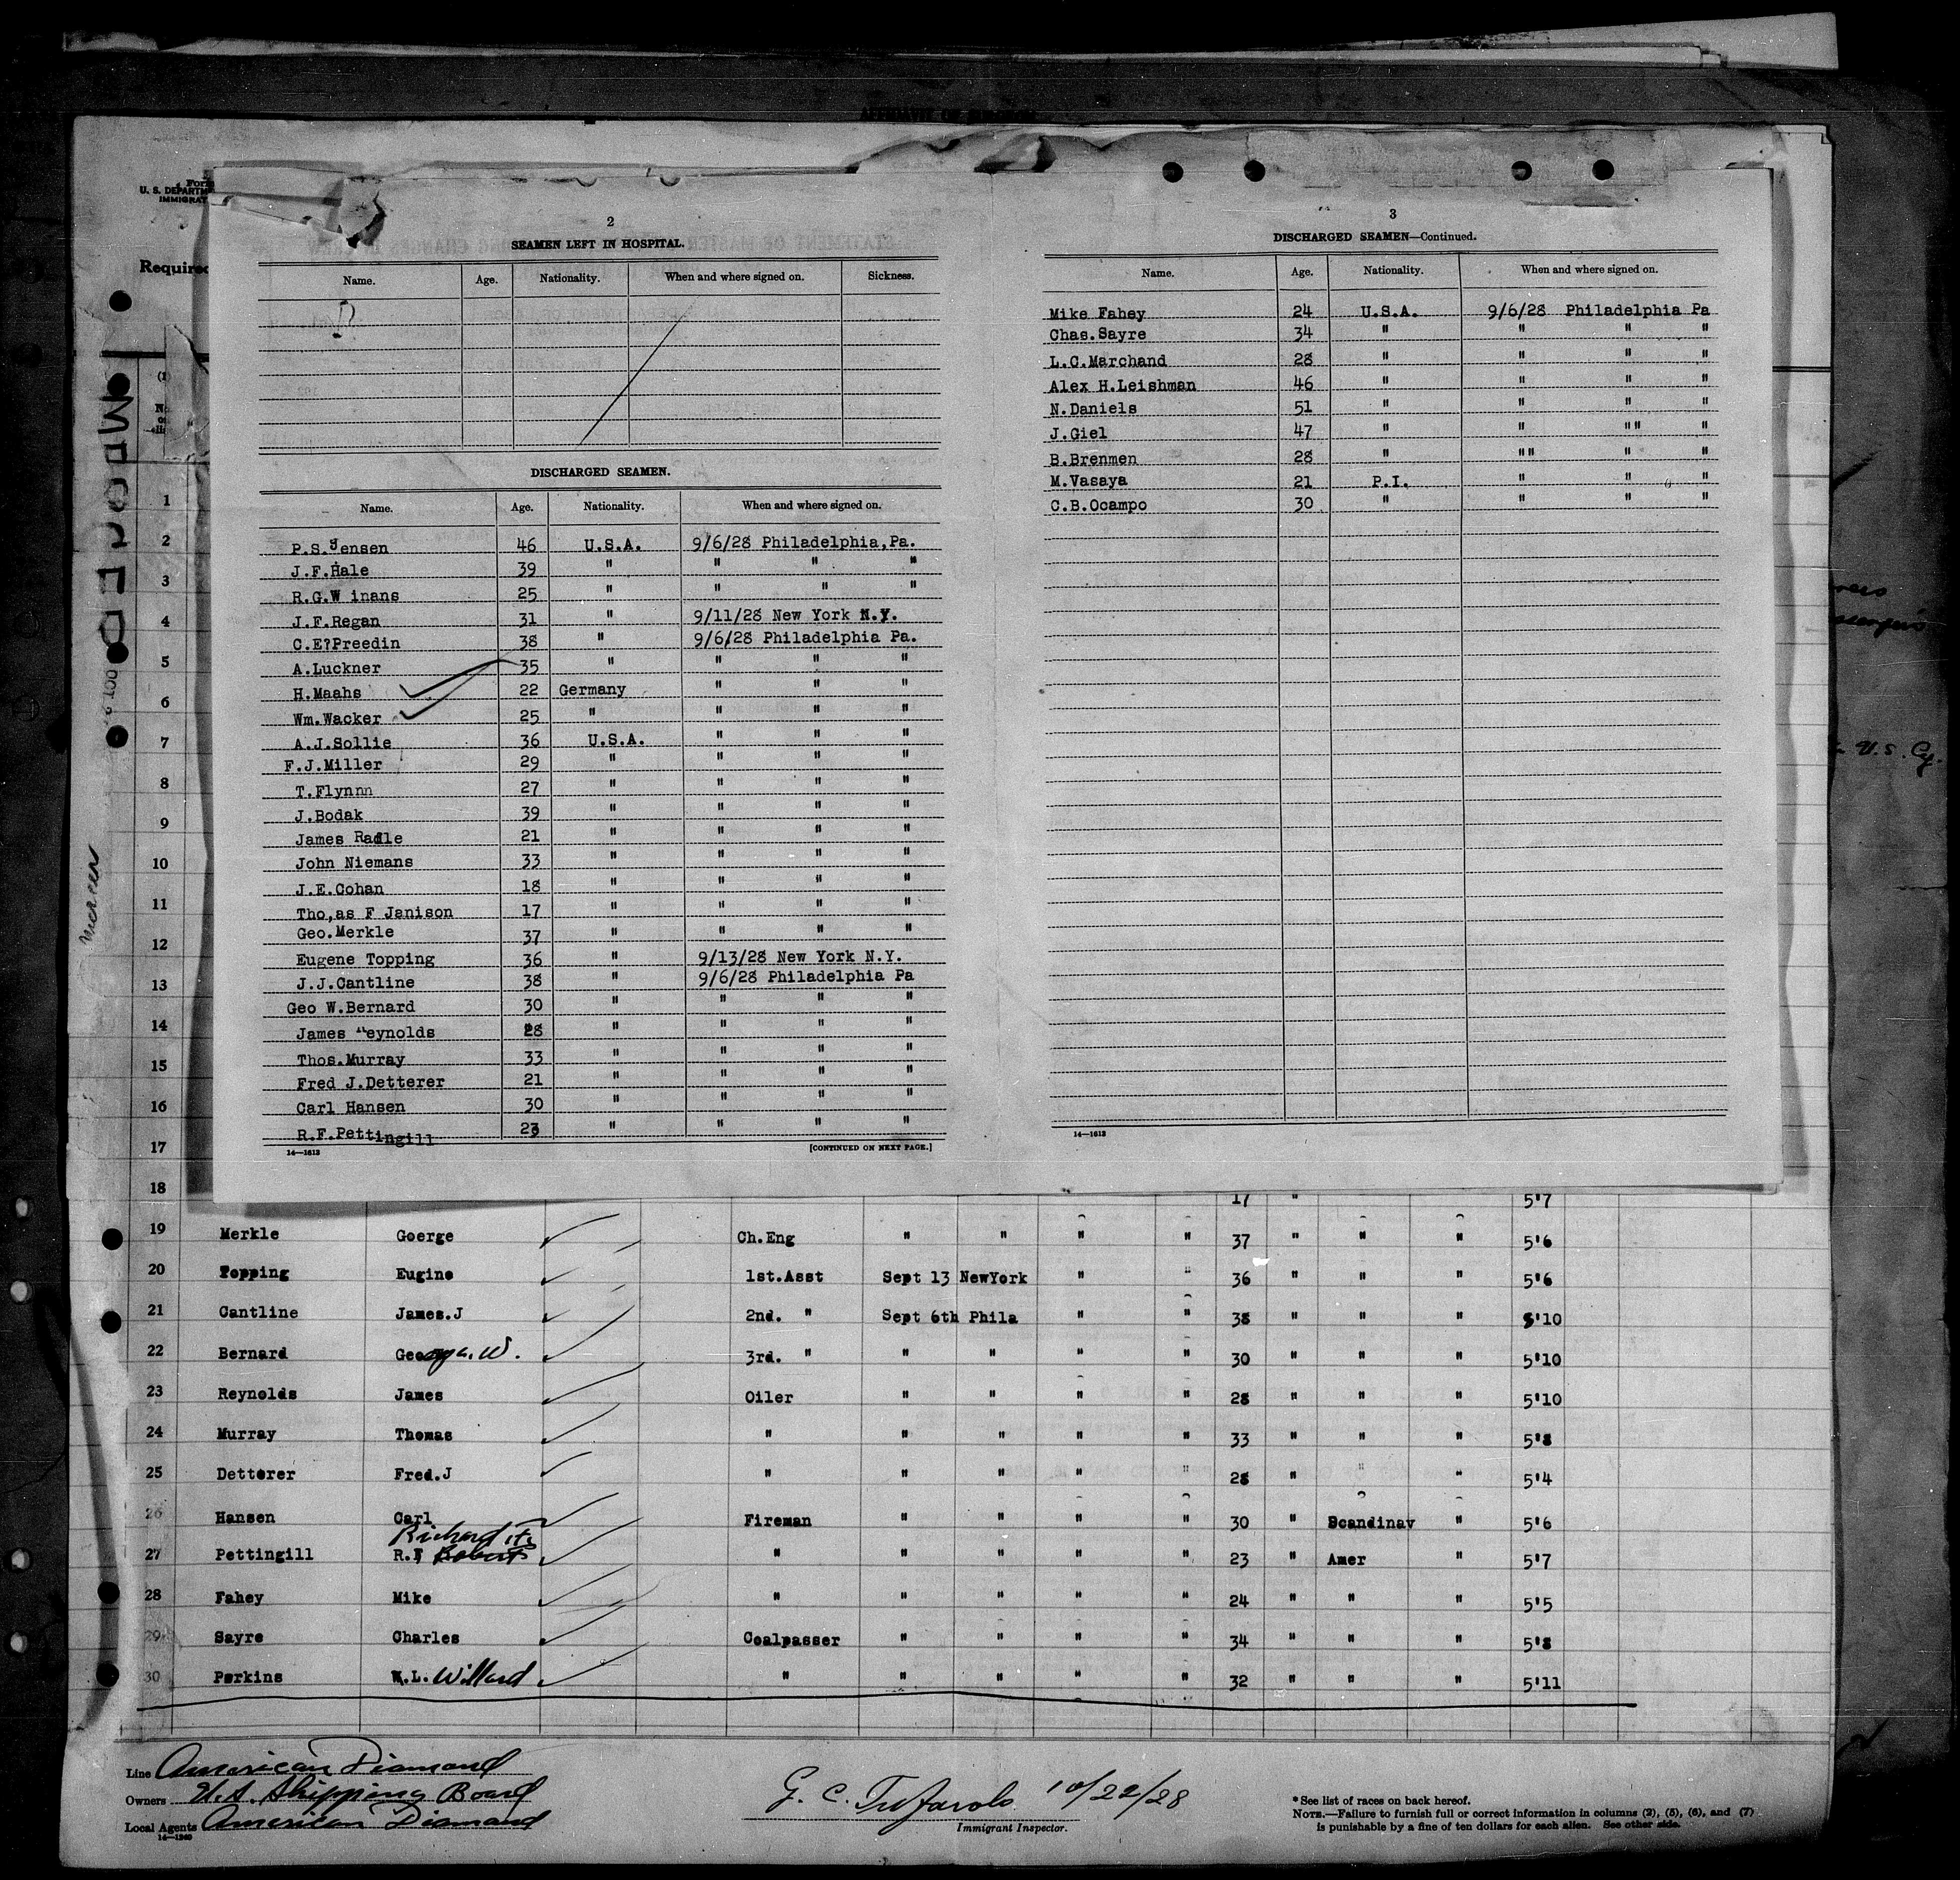 Form
U. S. DEPARTM
IMMIGRAT
Required
2
SEAMEN LEFT IN HOSPITAL.
Name. Age. Nationality. When and where signed on. Sickness.
DISCHARGED SEAMEN.
Name. Age. Nationality. When and where signed on.
P.S.Jensen 46 U.S.A. 9/6/28 Philadelphia,Pa.
J.F.Hale 39 " " " "
R.G.W inans 25 " " " "
J.F.Regan 31 " 9/11/28 New York N.Y.
C.E?Preedin 38 " 9/6/28 Philadelphia Pa.
A.Luckner 35 " " " "
H.Maahs 22 Germany " " "
Wm.Wacker 25 " " " "
A.J.Sollie 36 U.S.A. " " "
F.J.Miller 29 " " " "
T.Flynnn 27 " " " "
J.Bodak 39 " " " "
James Radle 21 " " " "
John Niemans 33 " " " "
J.E.Cohan 18 " " " "
Tho,as F Jenison 17 " " " "
Geo.Merkle 37 " " " "
Eugene Topping 36 " 9/13/28 New York N.Y.
J.J.Cantline 38 " 9/6/28 Philadelphia Pa
Geo W.Bernard 30 " " " "
James "eynolds 28 " " " "
Thos.Murray 33 " " " "
Fred J.Detterer 21 " " " "
Carl Hansen 30 " " " "
R.F.Pettingill 23 " " " "
14—1613 [CONTINUED ON NEXT PAGE.]
3
DISCHARGED SEAMEN—Continued.
Name. Age. Nationality. When and where signed on.
Mike Fahey 24 U.S.A. 9/6/28 Philadelphia Pa
Chas.Sayre 34 " " " "
L.C.Marchand 28 " " " "
Alex H.Leishman 46 " " " "
N.Daniels 51 " " " "
J.Giel 47 " " "" "
B.Brenmen 28 " "" " "
M.Vasaya 21 P.I. " " "
C.B.Ocampo 30 " " " "
14—1613
U.S. Cy.
1
2
3
4
5
6
7
8
9
10
11
12
13
14
15
16
17
18 17 " 5'7
19 Merkle Goerge Ch.Eng " " " " 37 " " " 5'6
20 Topping Eugine 1st.Asst Sept 13 NewYork " " 36 " " " 5'6
21 Cantline James.J 2nd. " Sept 6th Phila " " 38 " " " 5'10
22 Bernard George.W. 3rd. " " " " " 30 " " " 5'10
23 Reynolds James Oiler " " " " 28 " " " 5'10
24 Murray Thomas " " " " " 33 " " " 5'8
25 Detterer Fred.J " " " " " 28 " " " 5'4
26 Hansen Carl Fireman " " " " 30 " Scandinav " 5'6
Richard
27 Pettingill R.F Robert " " " " " 23 " Amer " 5'7
28 Fahey Mike " " " " " 24 " " " 5'5
29 Sayre Charles Coalpasser " " " " 34 " " " 5'8
30 Perkins W.L. Willard " " " " " 32 " " " 5'11
Line American Diamond
Owners U.S. Shipping Board
Local Agents American Diamond
14—1240
G. C. 10/22/28
Immigrant Inspector.
* See list of races on back hereof.
NOTE.—Failure to furnish full or correct information in columns (2), (5), (6), and (7)
is punishable by a fine of ten dollars for each alien. See other side.